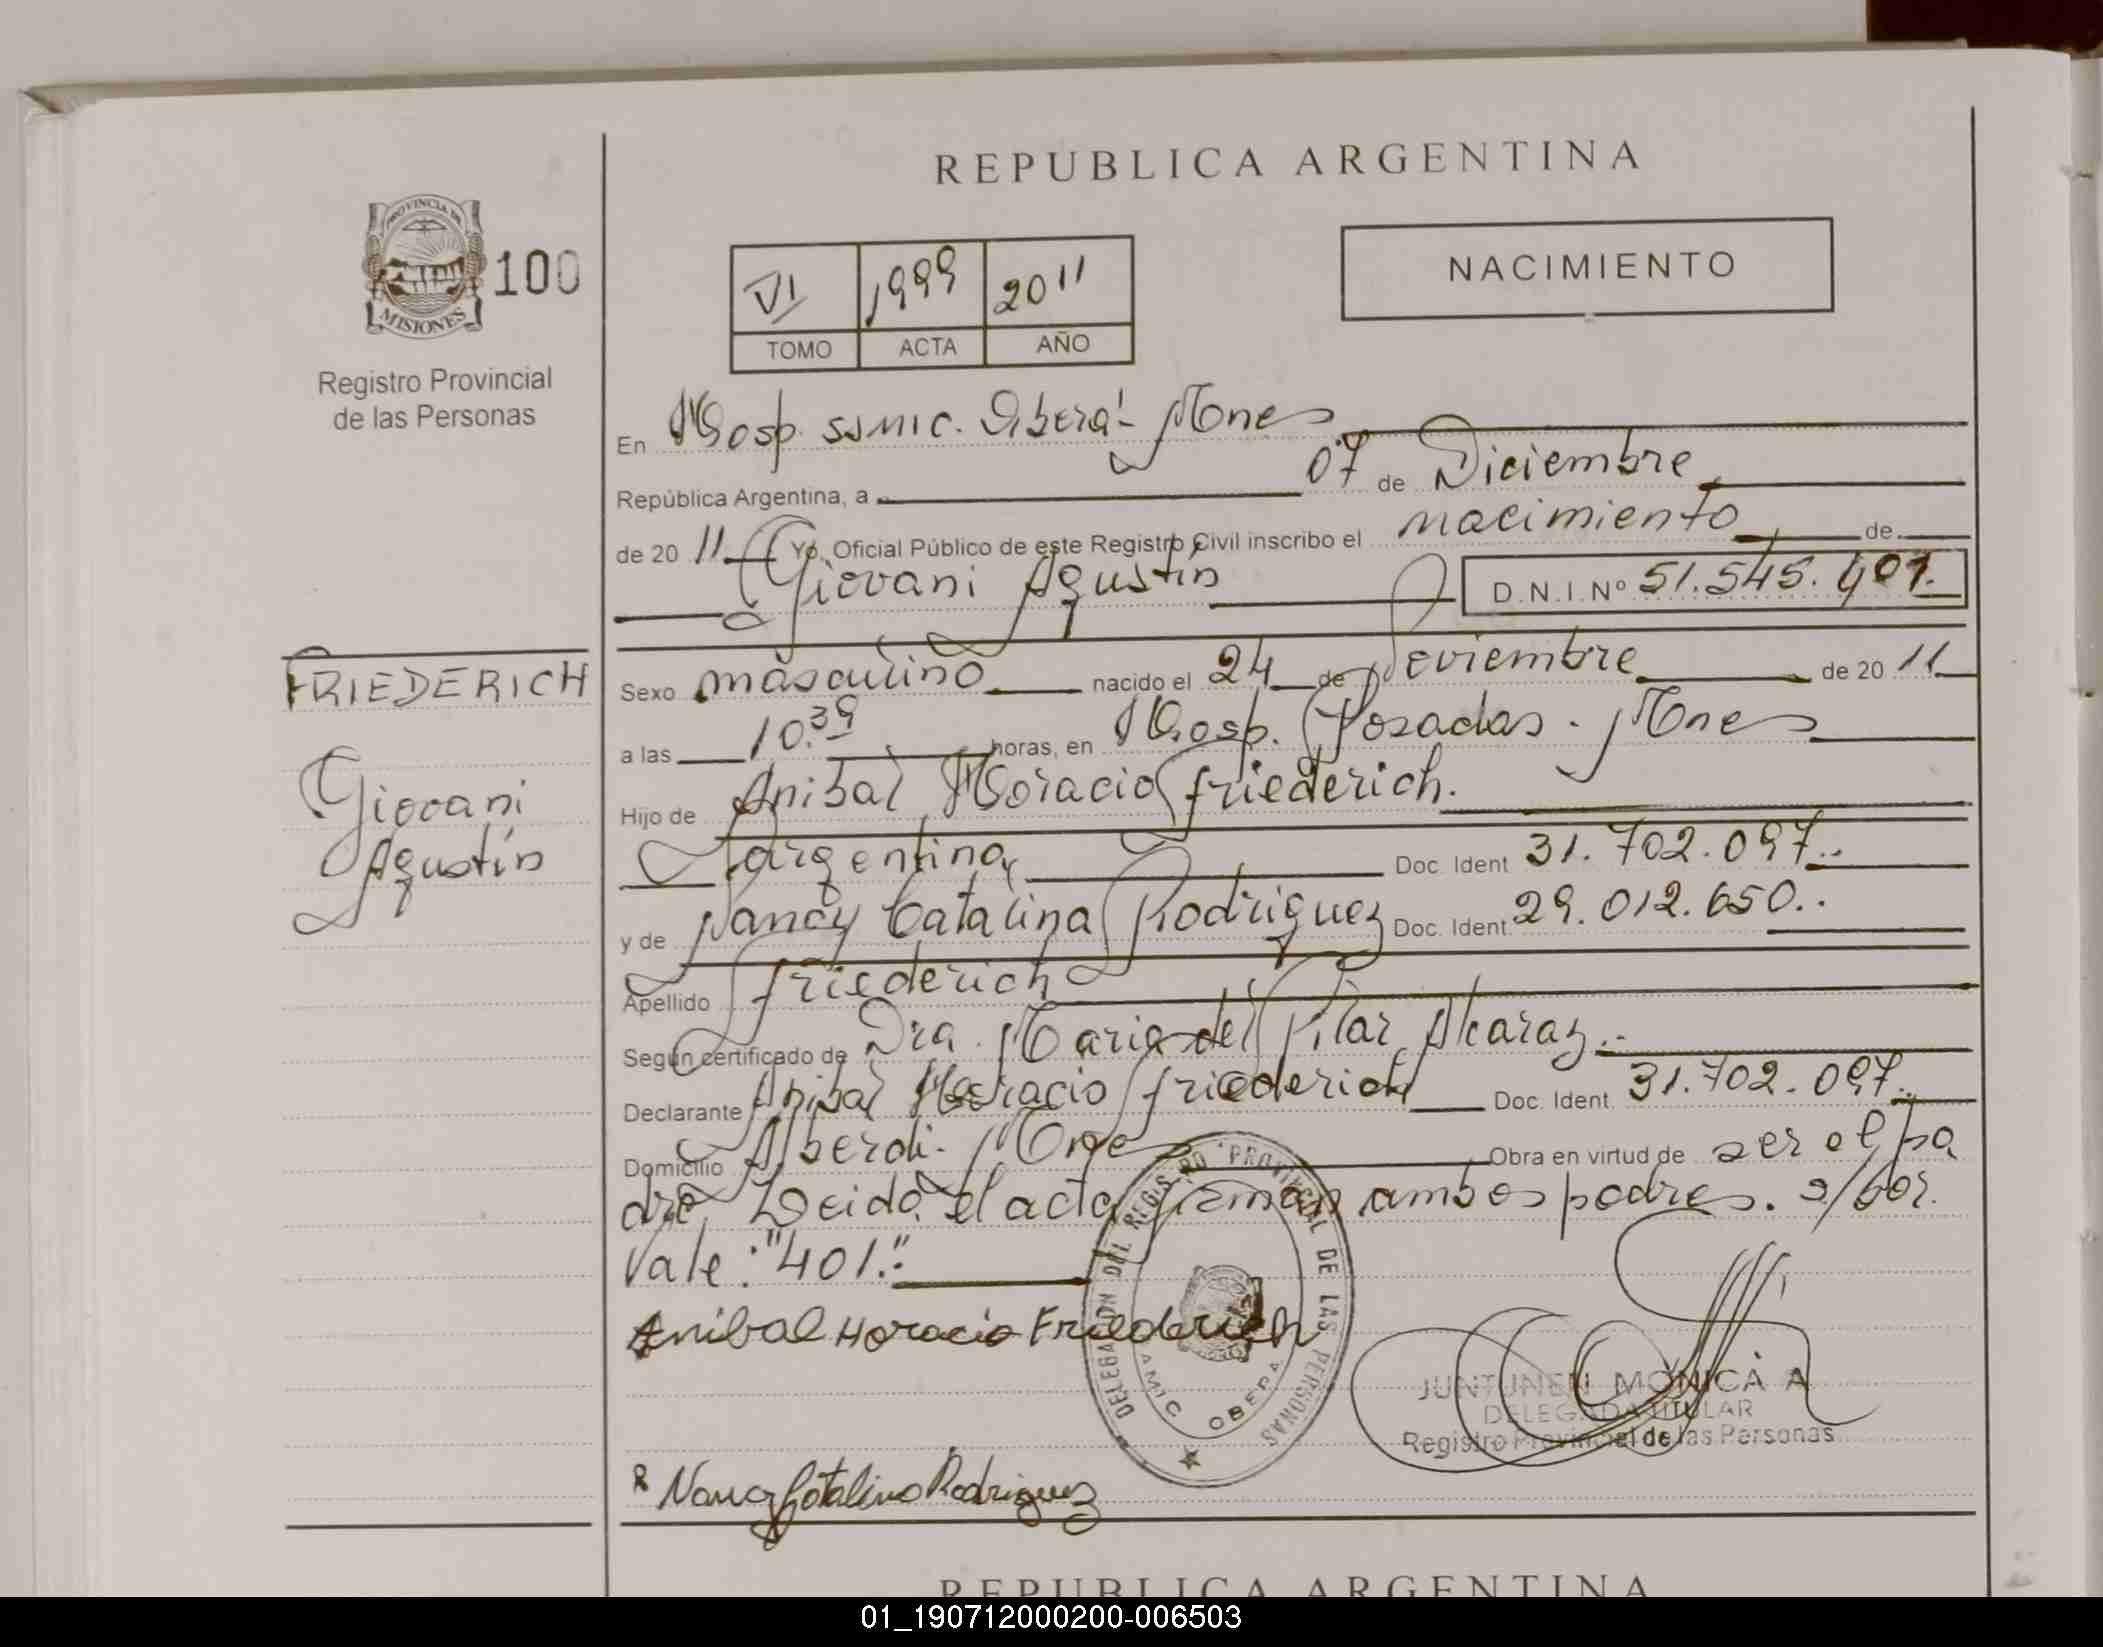 REPUBLICA ARGENTINA
PROVINCIA DE
MISIONES
100
Registro Provincial
de las Personas
NACIMIENTO
VI 1999 2011
TOMO ACTA AÑO
En Hosp. SSMIC. Oberá - Mnes
República Argentina, a 07 de Diciembre
de 20 11 Yo, Oficial Público de este Registro Civil inscribo el nacimiento de
Giovani Agustín D.N.I. Nº 51.545.401.
FRIEDERICH
Giovani
Agustín
Sexo masculino nacido el 24 de Noviembre de 20 11
a las 10.39 horas, en Hosp. Posadas - Mnes
Hijo de Anibal Horacio Friederich.
argentina Doc. Ident 31.702.097..
y de Nancy Catalina Rodriguez Doc. Ident. 29.012.650..
Apellido Friederich
Según certificado de Dra. Maria del Pilar Alcaraz..
Declarante Anibal Horacio Friederich Doc. Ident. 31.702.097.
Domicilio Alberdi - Mnes Obra en virtud de ser el pa
dre. Leida el acta firman ambos padres. s/bor.
Vale: "401."
Anibal Horacio Friederich
DELEGACION DEL REGISTRO PROVINCIAL DE LAS PERSONAS
OBERA
JUNTUNEN MONICA A
DELEGADA TITULAR
Registro Provincial de las Personas
Nancy Catalina Rodriguez
REPUBLICA ARGENTINA
01_190712000200-006503